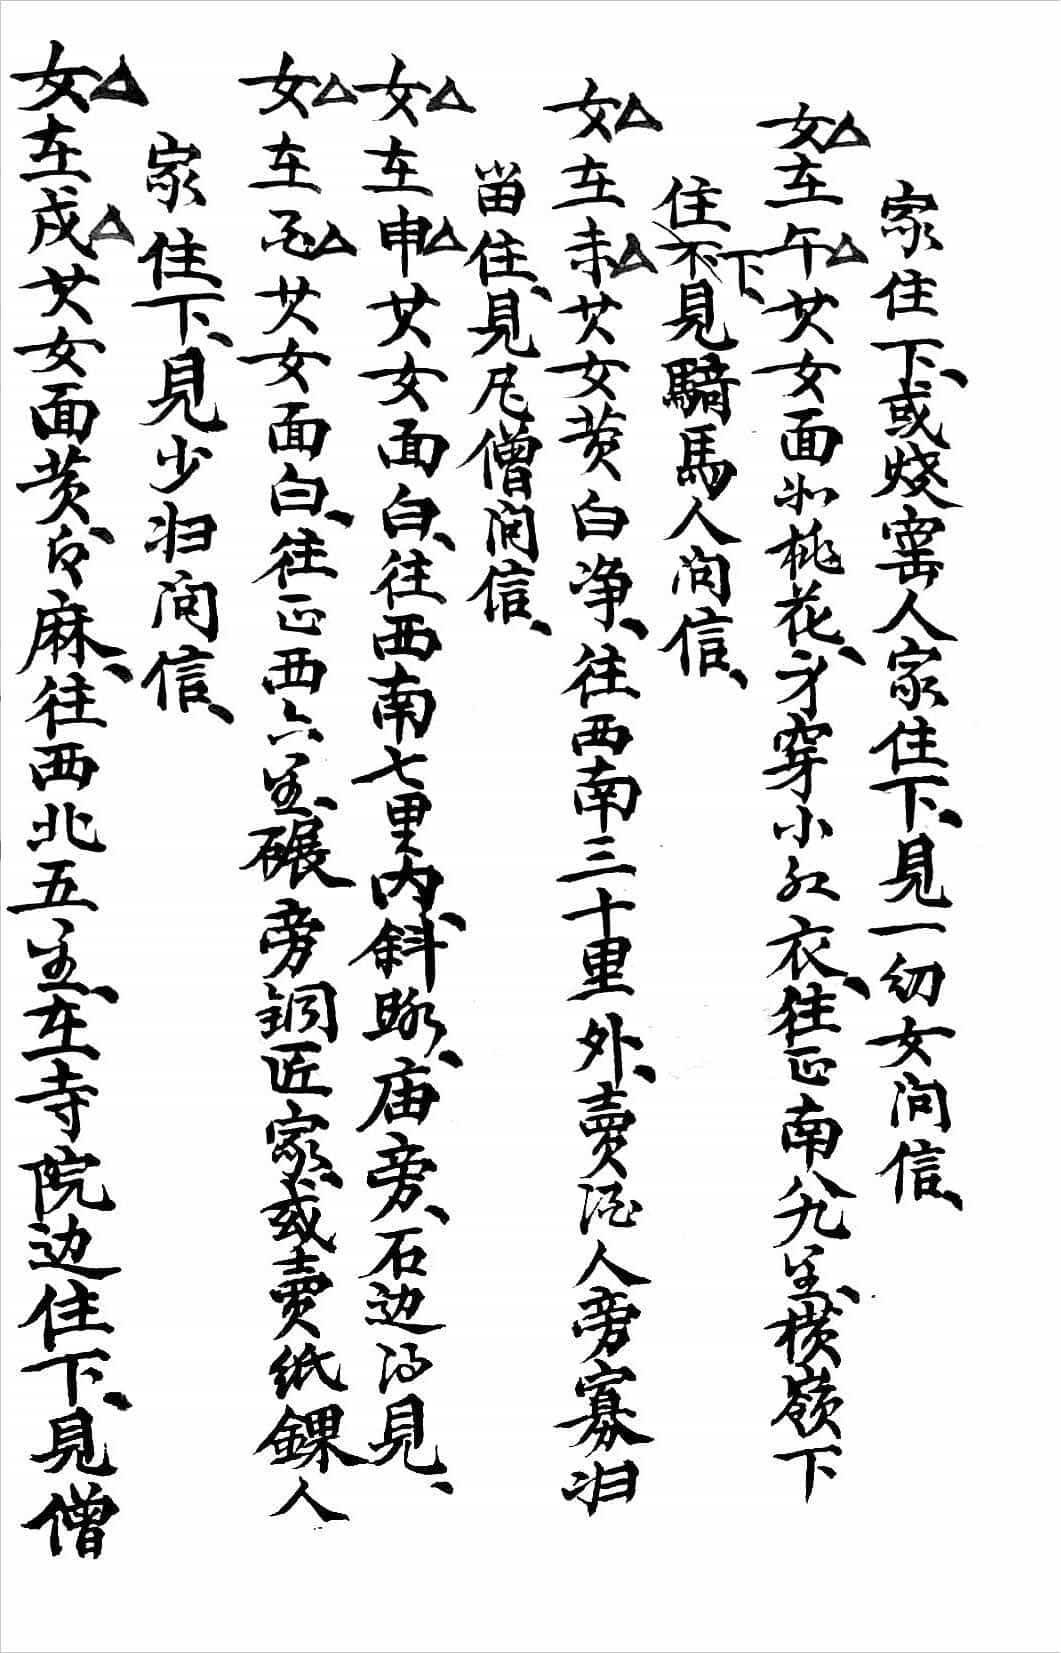 家住下、或烧窑人家住下、見一幼女问信、
女△在午△其女面如桃花、才穿小红衣、往正南八九里、横嶺下
住下、見騎馬人问信、
女△在未△其女黄白净、往西南三十里外、賣酒人旁寡妇
留住、見尼僧问信、
女△在申△其女面白、往西南七里内、斜路、庙旁、石边得見、
女△在酉△其女面白、往正西六里、碾旁铜匠家、或賣纸錁人
家住下、見少妇问信、
女△在戌△其女面黄白麻、往西北五里、在寺院边住下、見僧